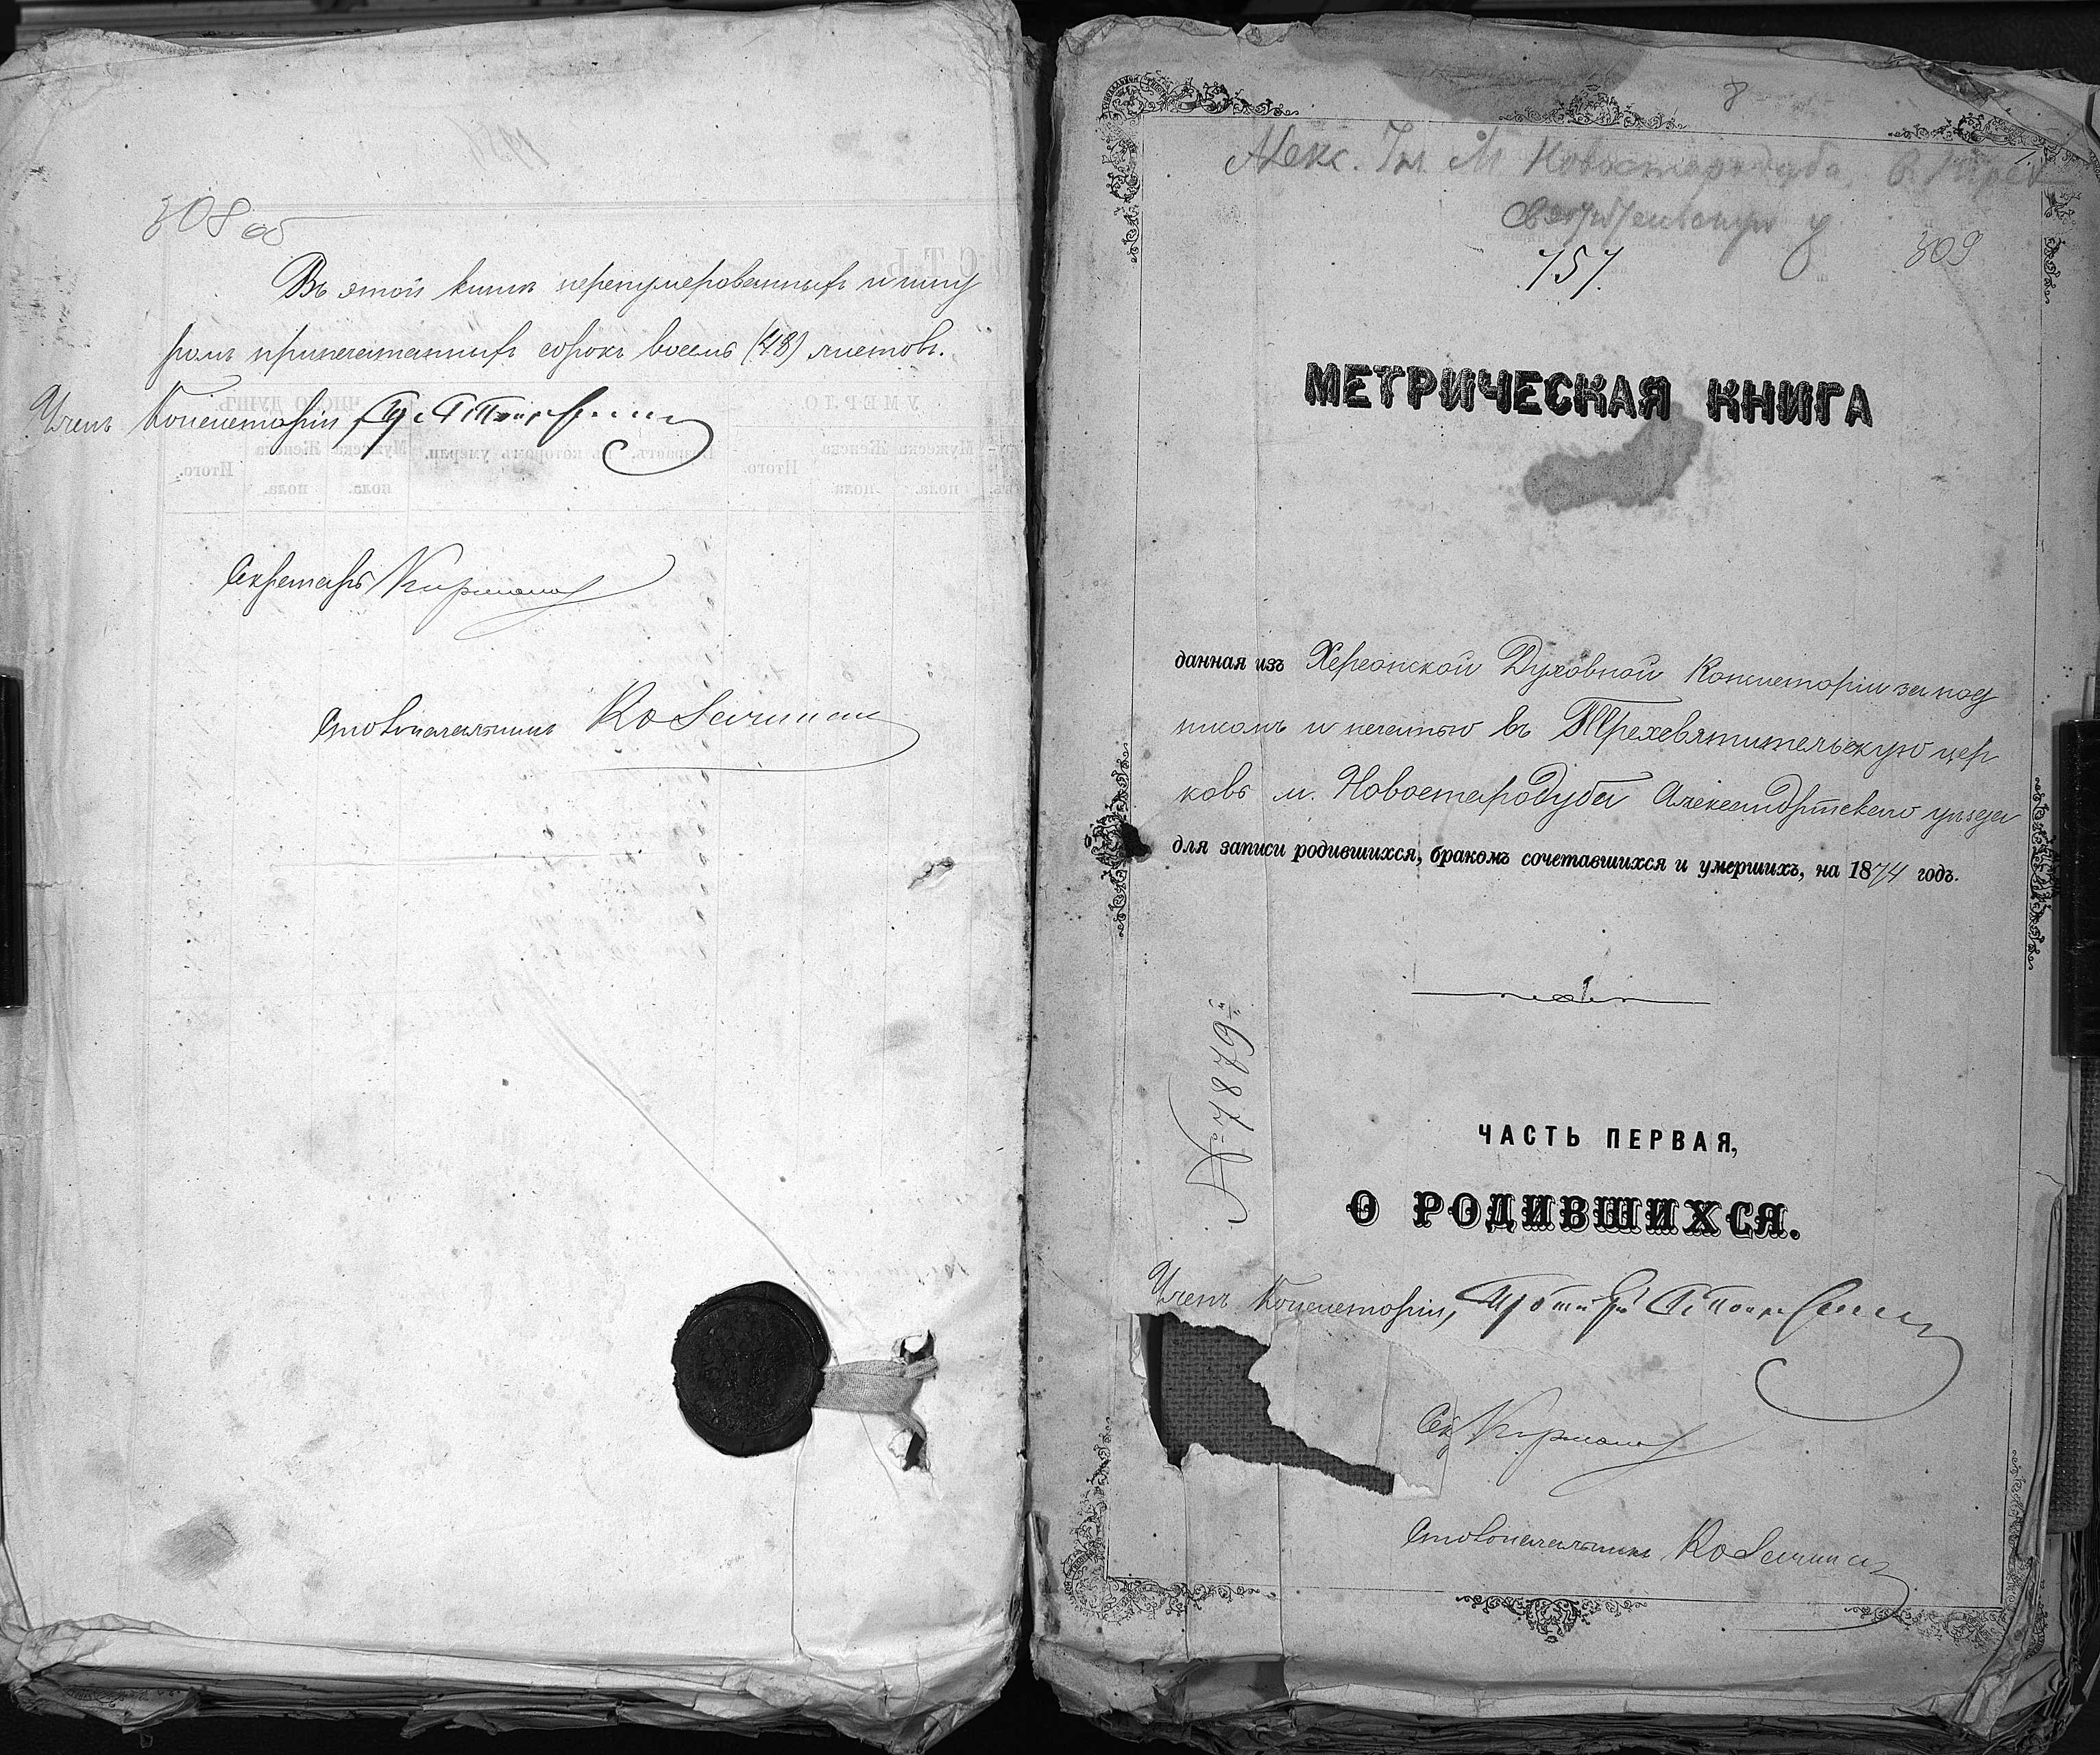 308 об
Въ этой книге перенумерованныхъ и шну
ромъ припечатанныхъ сорокъ восемь (48) листовъ.
Членъ Консисторіи,
Секретарь
Столоначальникъ
8
Алекс. М. Новостародуба
309
151.
МЕТРИЧЕСКАЯ КНИГА
данная изъ Херсонской Духовной Консисторіи за под
писомъ и печатью въ Трехсвятительскую цер
ковь м. Новостародуба Александрійскаго уѣзда
для записи родившихся, бракомъ сочетавшихся и умершихъ, на 1874 годъ.
№ 7879
ЧАСТЬ ПЕРВАЯ,
О РОДИВШИХСЯ.
Членъ Консисторіи,
Сек
Столоначальникъ